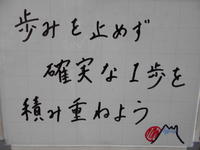 歩みを止めず
確実な1歩を
積み重ねよう